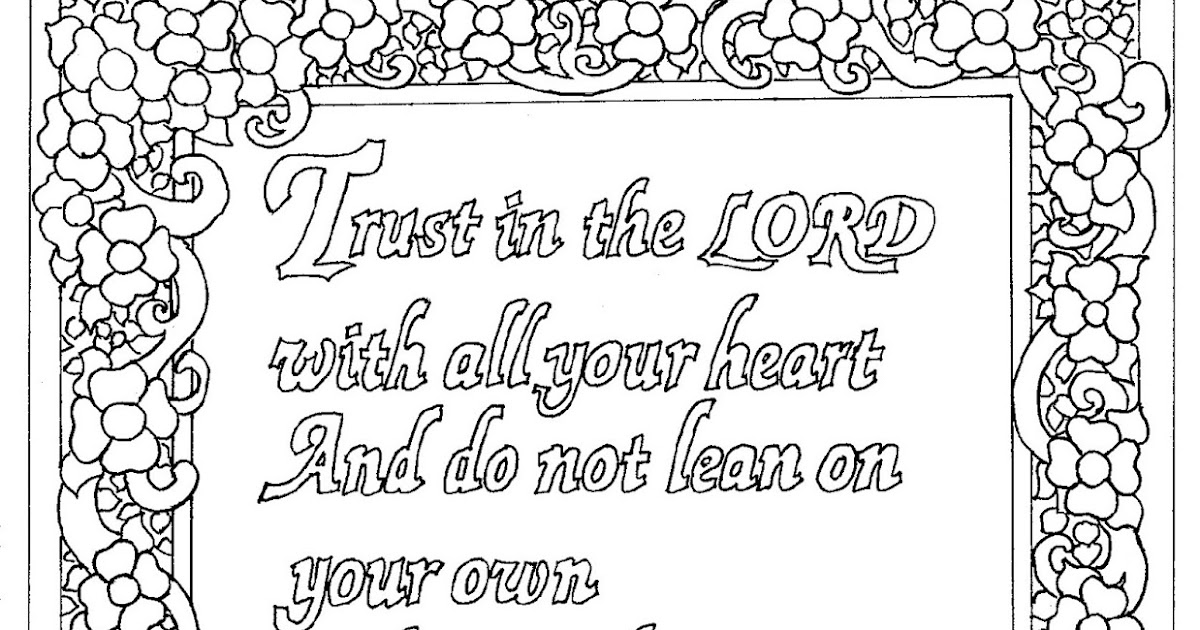 Trust in the LORD
with all your heart
And do not lean on
your own